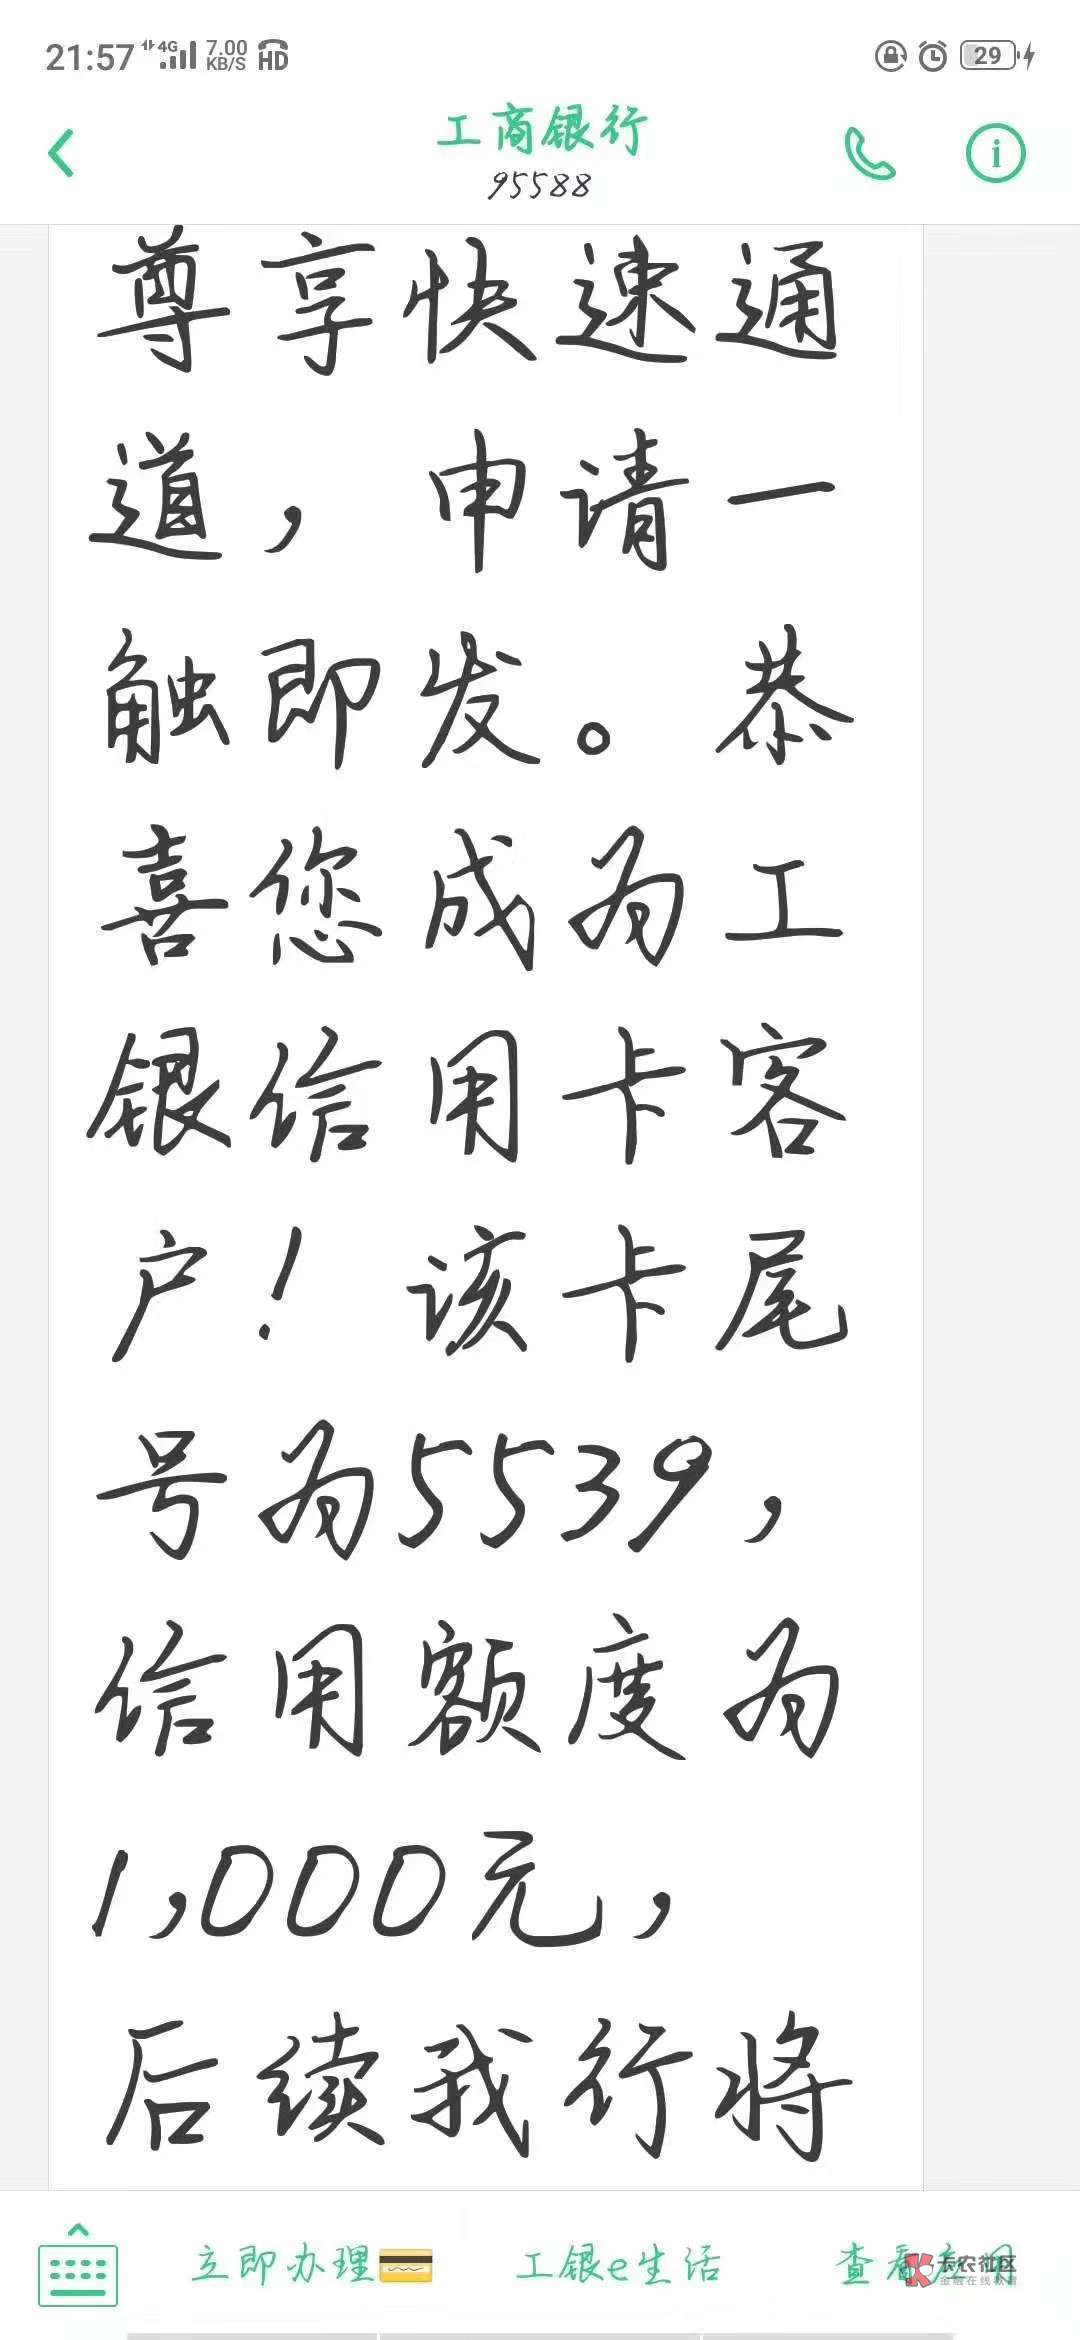 21:57 4G 7.00 KB/S HD 29
工商银行
95588
尊享快速通
道，申请一
触即发。恭
喜您成为工
银信用卡客
户！该卡尾
号为5539，
信用额度为
1,000元，
后续我行将
立即办理 工银e生活 查看
卡农社区
金融在线教育